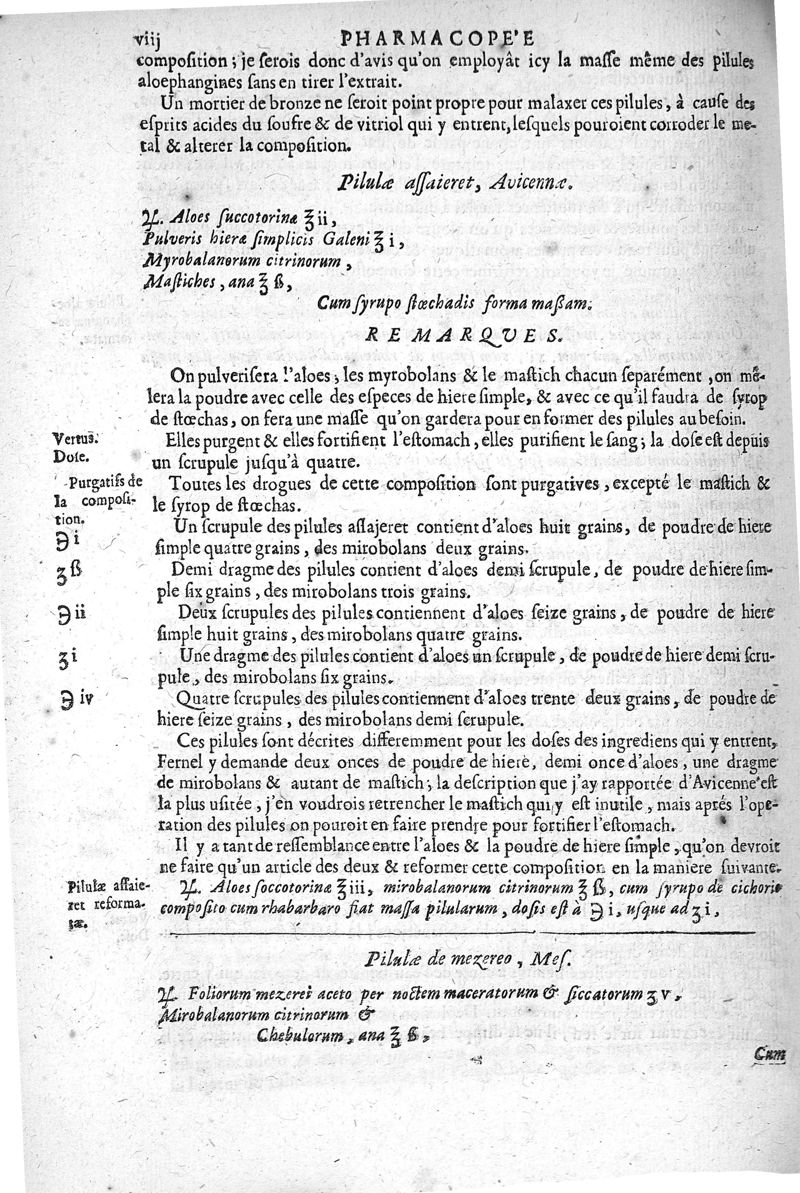 viij PHARMACOPE'E
composition; je serois donc d'avis qu'on employât icy la masse même des pilules
aloephangines sans en tirer l'extrait.
Un mortier de bronze ne seroit point propre pour malaxer ces pilules, à cause des
esprits acides du soufre & de vitriol qui y entrent, lesquels pouroient corroder le me-
tal & alterer la composition.
Pilulæ assaieret, Avicennæ.
♃. Aloes succotorinæ ℥ ii,
Pulveris hieræ simplicis Galeni ℥ i,
Myrobalanorum citrinorum,
Mastiches, ana ℥ ß,
Cum syrupo stœchadis forma maßam.
REMARQUES.
On pulverisera l'aloes, les myrobolans & le mastich chacun separément, on mê-
lera la poudre avec celle des especes de hiere simple, & avec ce qu'il faudra de syrop
de stœchas, on fera une masse qu'on gardera pour en former des pilules au besoin.
Vertus. Elles purgent & elles fortifient l'estomach, elles purifient le sang; la dose est depuis
Dose. un scrupule jusqu'à quatre.
Purgatifs de Toutes les drogues de cette composition sont purgatives, excepté le mastich &
la composi- le syrop de stœchas.
tion.
℈ i Un scrupule des pilules assajeret contient d'aloes huit grains, de poudre de hiere
simple quatre grains, des mirobolans deux grains.
ʒ ß Demi dragme des pilules contient d'aloes demi scrupule, de poudre de hiere sim-
ple six grains, des mirobolans trois grains.
℈ ii Deux scrupules des pilules contiennent d'aloes seize grains, de poudre de hiere
simple huit grains, des mirobolans quatre grains.
ʒ i Une dragme des pilules contient d'aloes un scrupule, de poudre de hiere demi scru-
pule, des mirobolans six grains.
℈ iv Quatre scrupules des pilules contiennent d'aloes trente deux grains, de poudre de
hiere seize grains, des mirobolans demi scrupule.
Ces pilules sont décrites differemment pour les doses des ingrediens qui y entrent,
Fernel y demande deux onces de poudre de hiere, demi once d'aloes, une dragme
de mirobolans & autant de mastich; la description que j'ay rapportée d'Avicenne est
la plus usitée, j'en voudrois retrencher le mastich qui y est inutile, mais aprés l'ope-
ration des pilules on pouroit en faire prendre pour fortifier l'estomach.
Il y a tant de ressemblance entre l'aloes & la poudre de hiere simple, qu'on devroit
ne faire qu'un article des deux & reformer cette composition en la maniere suivante.
Pilulæ assaie- ♃. Aloes soccotorinæ ℥ iii, mirobalanorum citrinorum ℥ ß, cum syrupo de cichorio
ret reforma- composito cum rhabarbaro fiat massa pilularum, dosis est à ℈ i, usque ad ʒ i,
tæ.
Pilulæ de mezereo, Mes.
♃. Foliorum mezerei aceto per noctem maceratorum & siccatorum ʒ v,
Mirobalanorum citrinorum &
Chebulorum, ana ℥ ß,
Cum